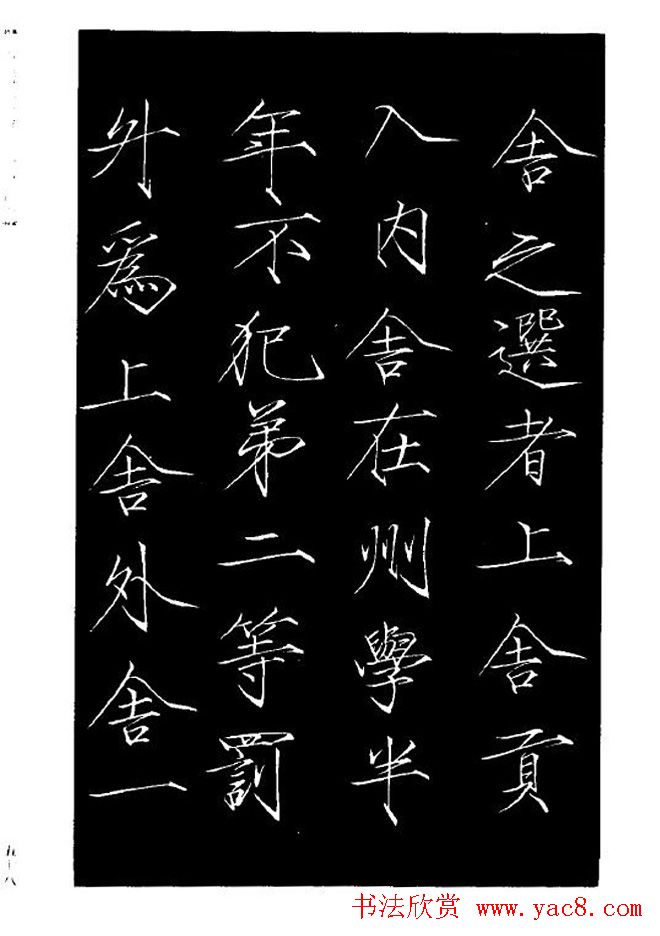 舍之選者上舍貢
入内舍在州學半
年不犯弟二等罰
升爲上舍外舍一
五十八
书法欣赏 www.yac8.com